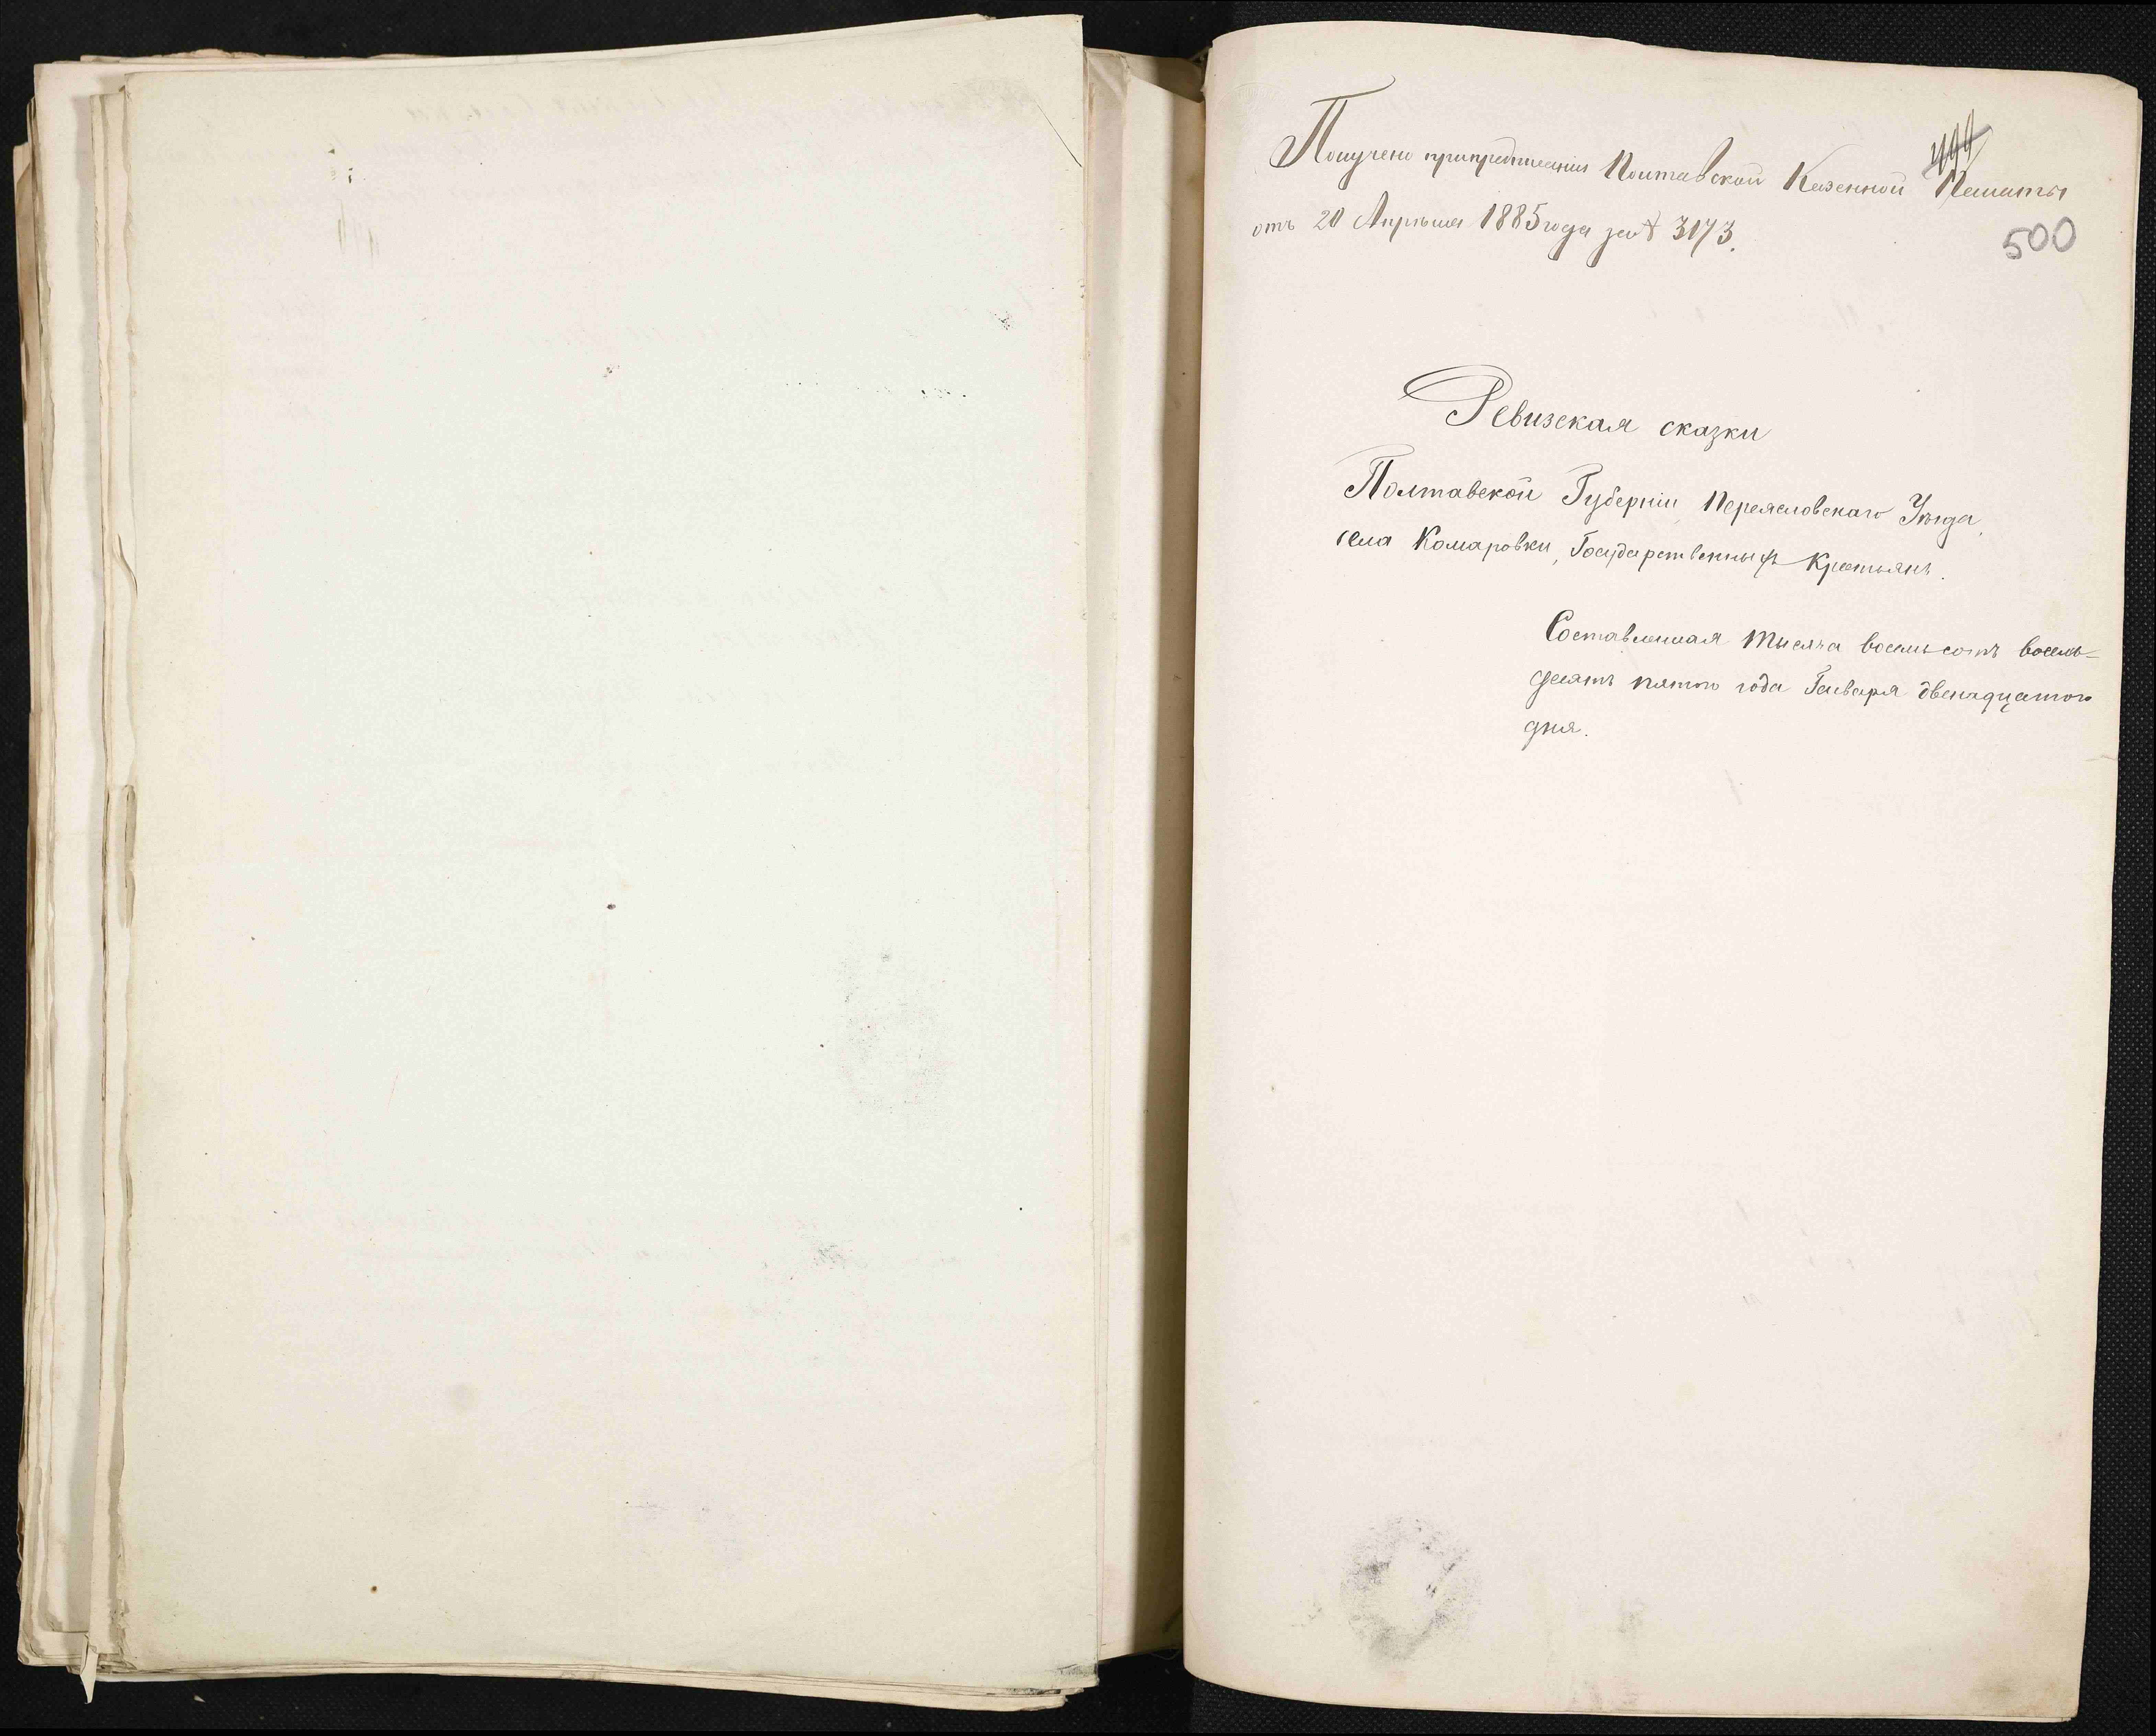 Получено припредписаніи Полтавской Казенной Палаты
499
отъ 20 Апрѣля 1885 года за № 3173.
500
Ревизская сказки
Полтавской Губерніи Переясловскаго Уѣзда,
села Комаровки, Государственныхъ Крестьянъ.
Составленная тысяча восемьсотъ восемь-
десятъ пятого года Генваря двенадцатого
дня.